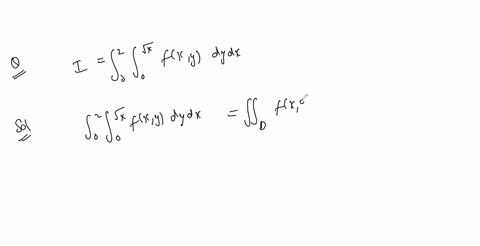 Q I = ∫₀² ∫₀^√x f(x,y) dy dx
Sol ∫₀² ∫₀^√x f(x,y) dy dx = ∬_D f(x,